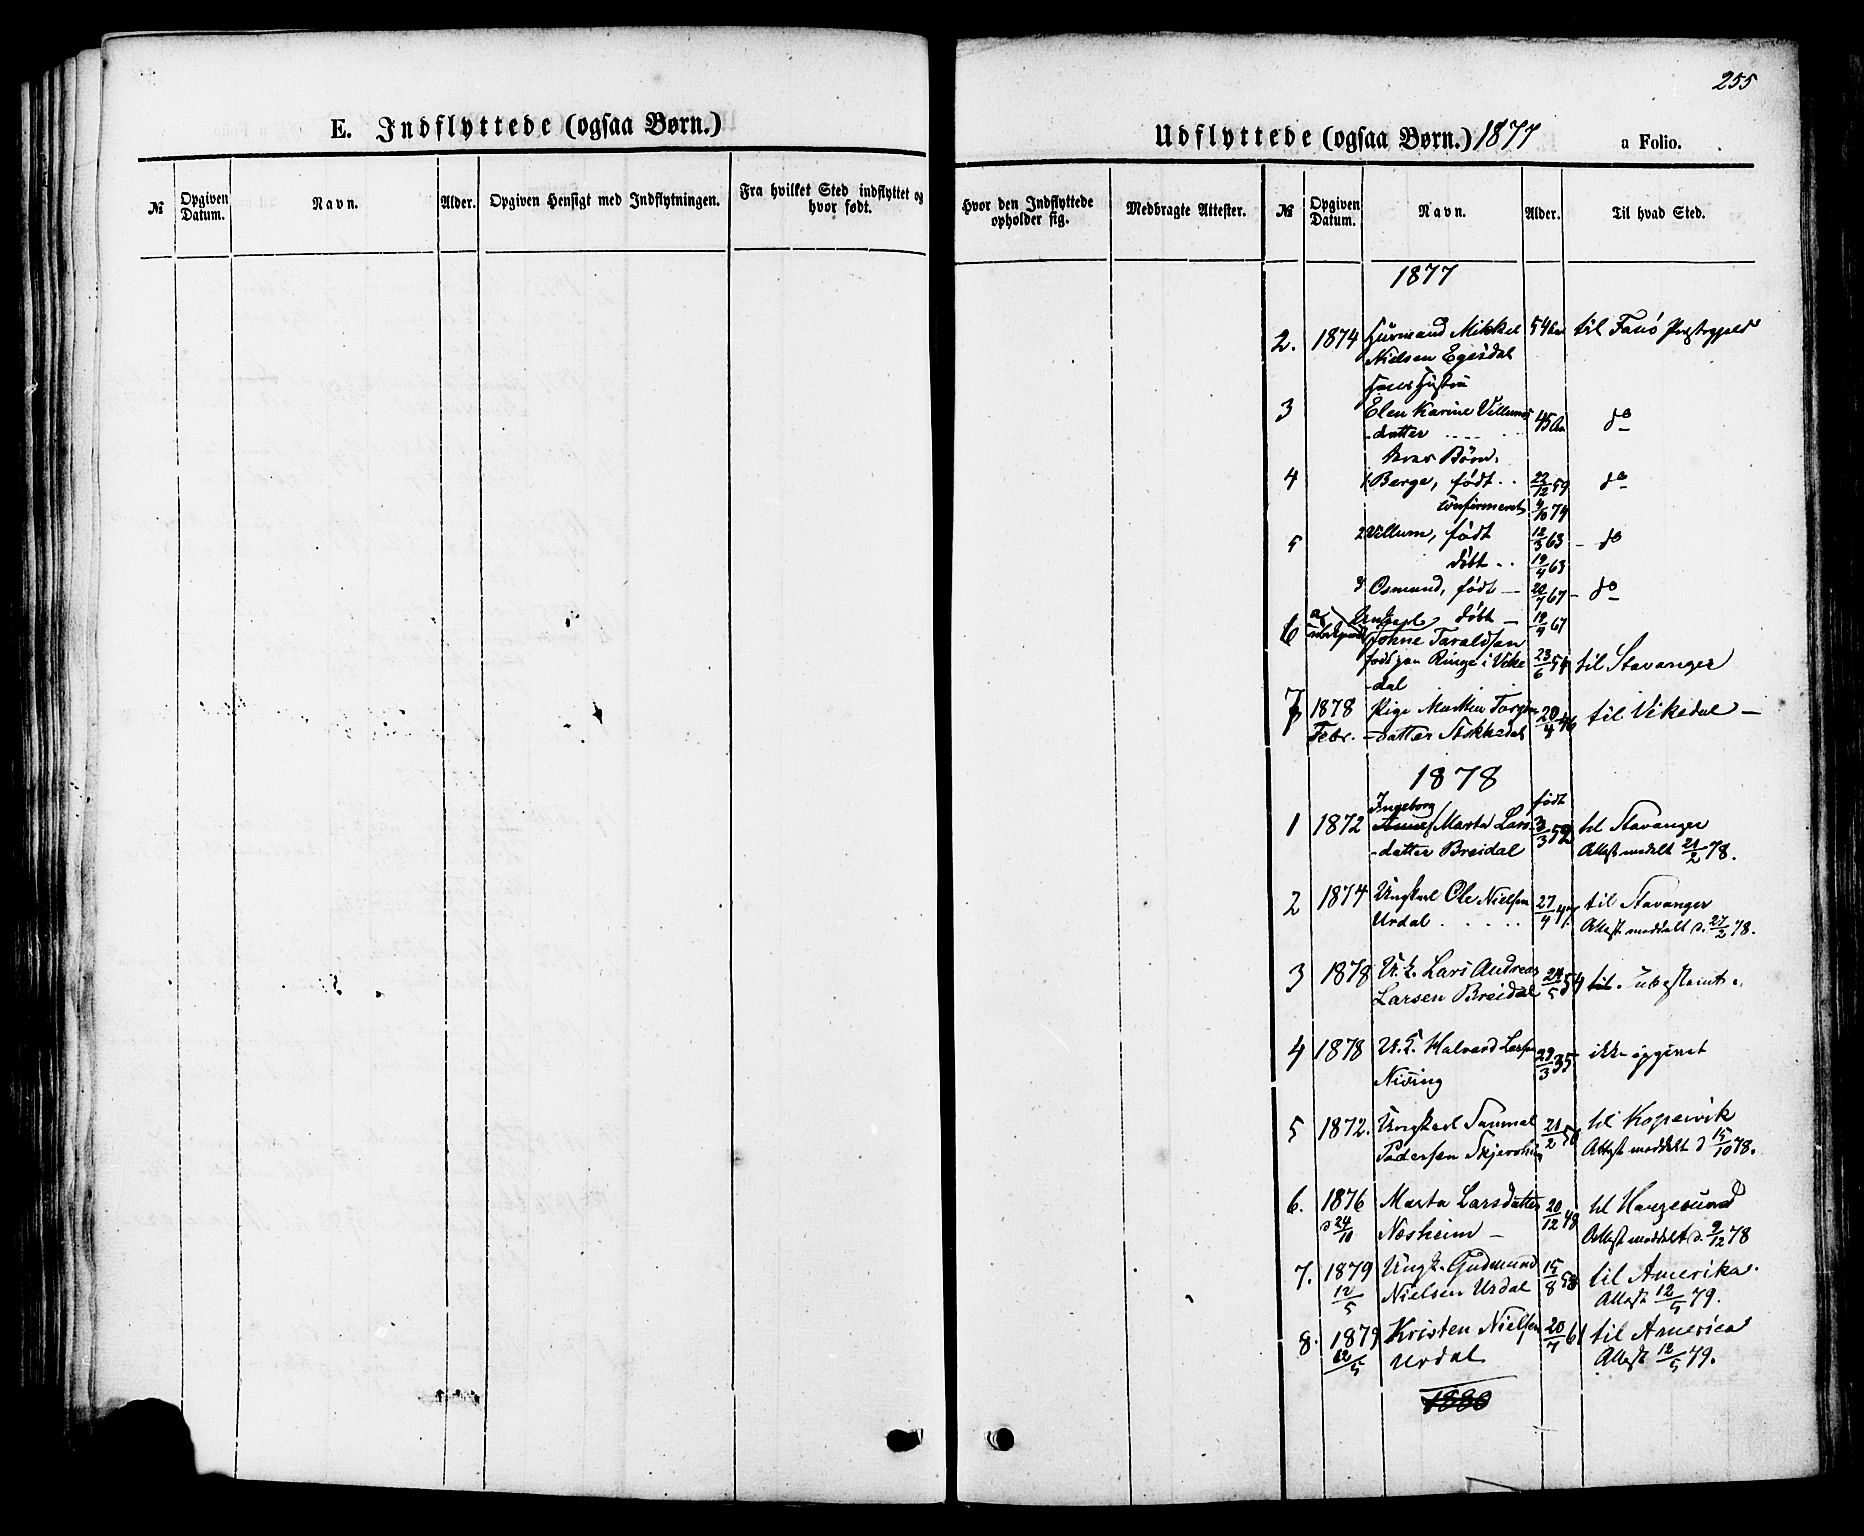 255
E. Indflyttede (ogsaa Børn.)
Udflyttede (ogsaa Børn.) 1877
a Folio.
№ Opgiven Datum. Navn. Alder. Opgiven Hensigt med Indflytningen. Fra hvilket Sted indflyttet og hvor født.
Hvor den Indflyttede opholder sig. Medbragte Attester. № Opgiven Datum. Navn. Alder. Til hvad Sted.
1877
2. 1874 Huusmand Mikkel 54 til
Nielsen Egesdal
Hans Hustru
3 Elen Karine Villums 45 Aar do
-datter
Børn:
4 1 Berge, født 22/12 59 do
konfirmeret 4/10 74
5 2 Villum, født 12/3 63 - do
døbt 19/4 63
3 Osmund, født - 20/7 67 - do
døbt - 67
6 Ungkarl
Tohne Taraldsen
Ringe i Vike 23/6 til Stavanger
-dal
7 1878 Pige Martha 20/4 46 til Vikedal -
Febr. -datter
1878
Ingeborg født
1 1872 Anne Marta Lars 3/3 52 til Stavanger
-datter Breidal Attest meddelt 21/2 78.
2 1874 Ungkarl Ole Nielsen 27/4 47 til Stavanger
Urdal Attest meddelt d. 27/2 78.
3 1878 U.k. Lars Andreas 54 til ubestemt.
Larsen Breidal
4 1878 U.k. Halvard Larsen 29/3 35 ikke opgivet
5 1872. Ungkarl Sammel 21/2 til Kopervik
Pedersen Attest meddelt d 15/10 78.
6. 1876 Marta Larsdatter 20/12 48 til Haugesund
d 24/10 Nesheim - Attest meddelt d. 9/12 78
7. 1879 Ungk. Gudmund 15/8 58 til Amerika.
12/5 Nielsen Urdal Attest 12/5 79.
8. 1879 Kristen Nielsen 20/7 61 til America
12/5 Urdal Attest 12/5 79.
1880